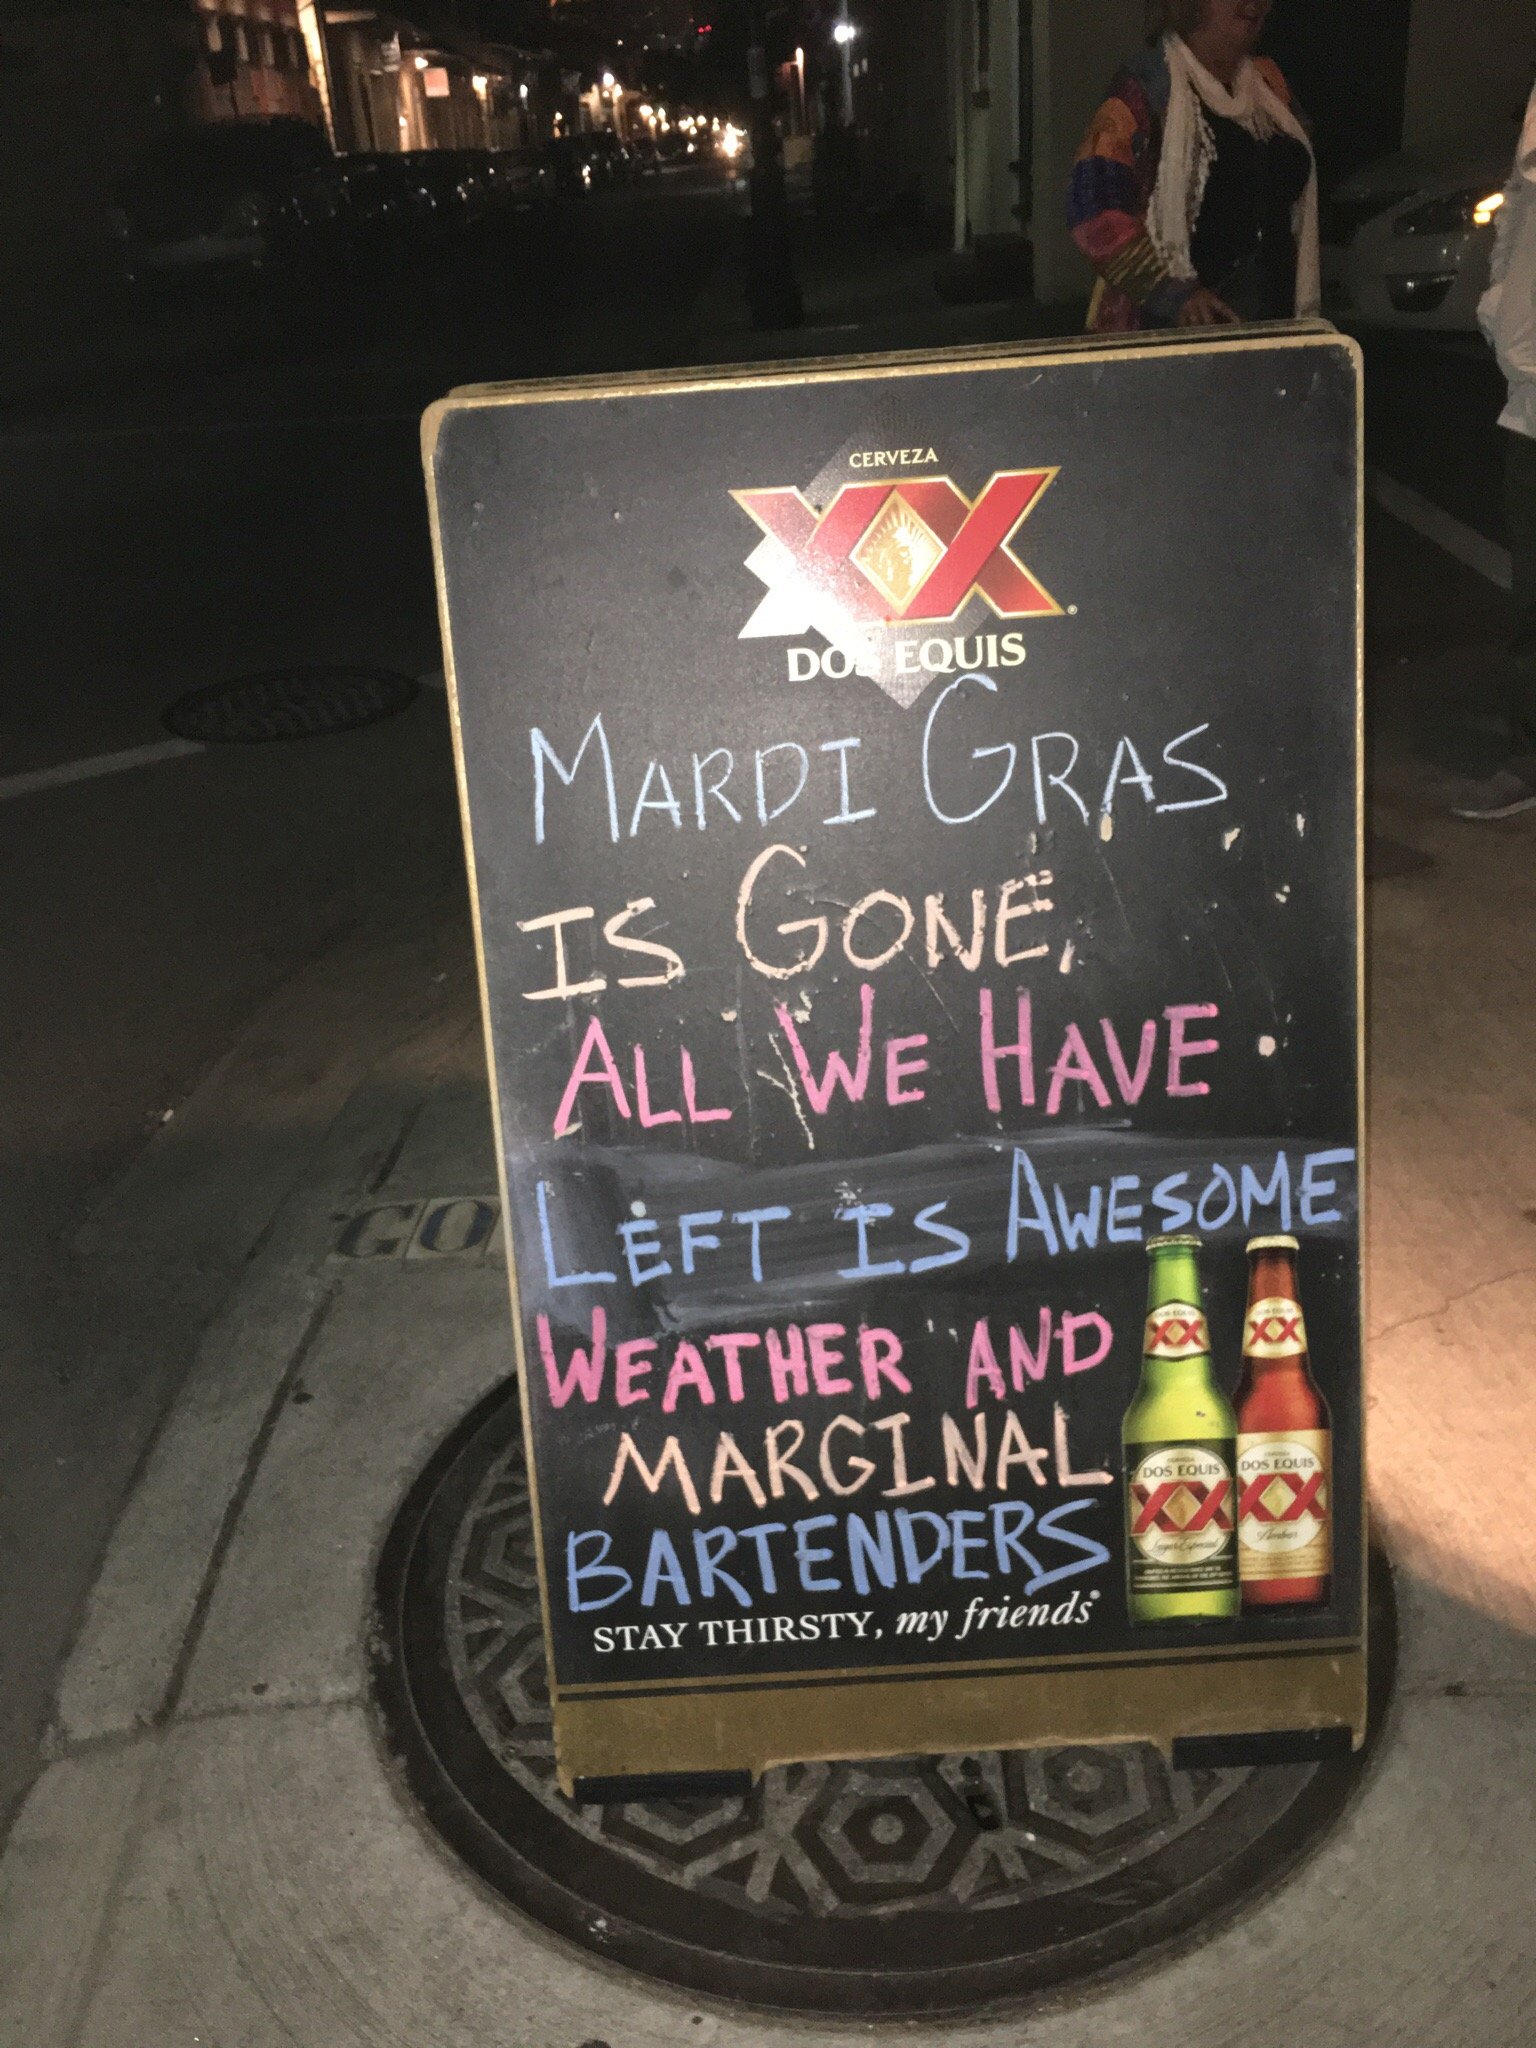 CERVEZA
XX
DOS EQUIS
MARDI GRAS
IS GONE,
ALL WE HAVE
LEFT IS AWESOME
WEATHER AND
MARGINAL
BARTENDERS
STAY THIRSTY, my friends®
XX
XX
DOS EQUIS
XX
DOS EQUIS
XX
GO